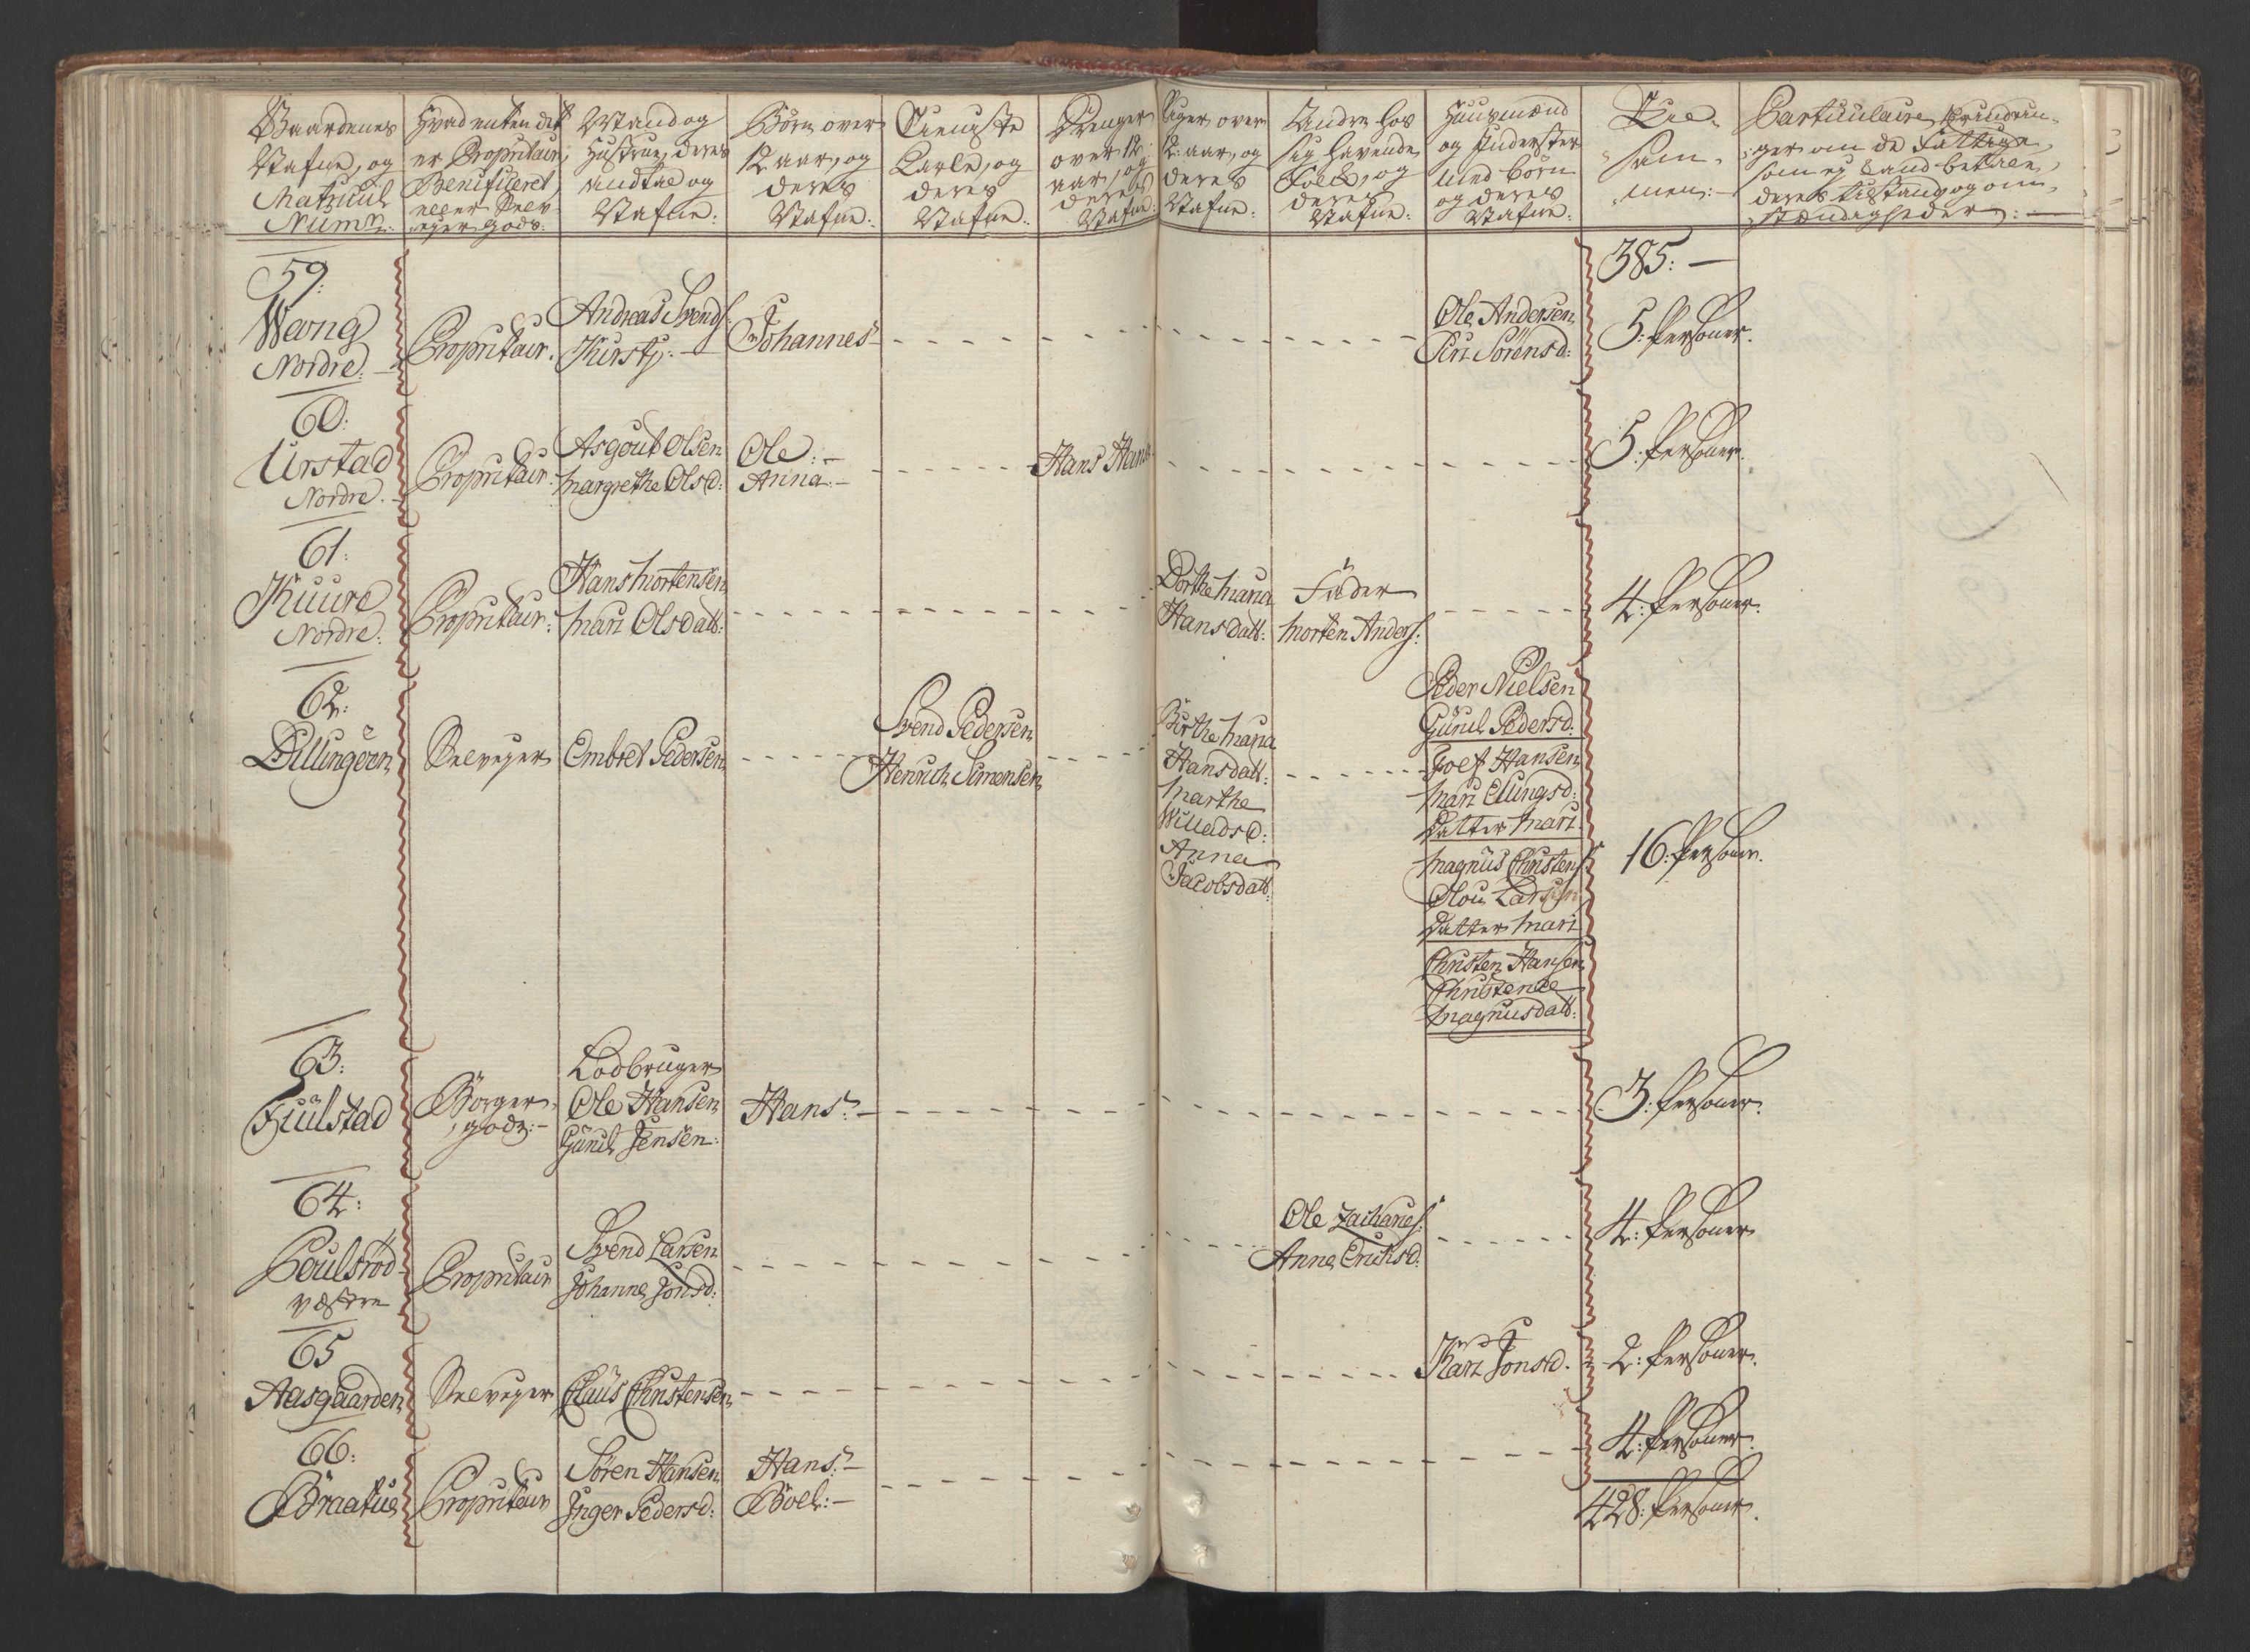 Gaardenes
Nafne, og
Matricul
Numr:
Hvad enten det
er Propritair,
Benificeret,
eller Selv-
eyer Gods:
Mand og
Hustrue, deres
Andtal og
Nafne:
Børn over
12 aar, og
deres
Nafne:
Tieniste
Karle, og
deres
Nafne:
Drenger
over 12
aar, og
deres
Nafne:
Piger over
12: aar, og
deres
Nafne:
Andre hos
sig havende
Folck, og
deres
Nafne:
Huusmænd
og Inderster
med Børn
og deres
Nafne:
Til-
sam-
men:
Particulaire Erindrin-
ger om de Fattige,
som ej kand betale,
deres tilstand og om-
stændigheder: —
385: —
59:
Wang
Nordre: —
Propritair.
Andreas Svends:
Kirsty: —
Johannes
Ole Andersen
Siri Sörensd:
5: Personer.
60:
Urstad
Nordre. —
Propritair:
Asgout Olsen
Margrethe Olsd:
Ole: —
Anna: —
Hans Hans:
5: Personer.
61:
Kuure
Nordre:
Propritair:
Hans Mortensen
Mari Olsdatt:
Dorthe Maria
Hansdatt:
Fader
Morten Anders:
4: Personer.
62:
Dillingöen
Selveyer
Embret Pedersen
Svend Pedersen
Henrich Simensen
Birthe Maria
Hansdatt:
Marthe
Willadsd:
Anna
Jacobsdatt:
Peder Nielsen
Gunil Pedersd:
Joef Hansen
Mari Ellingsd:
Datter Mari
Magnus Christens:
Olou Larsen
Datter Mari
Christen Hansen
Christence
Magnusdatt:
16: Personer.
63:
Fiulstad
Borger-
gods: —
Lodbruger
Ole Hansen
Gunil Jensen:
Hans: —
3: Personer.
64:
Poulsröd
Vestre
Propritair
Svend Larsen
Johanne Jonsd:
Ole Zacharies:
Anne Erichsd:
4: Personer
65
Aasgaarden
Selveyer
Claus Christensen
Kari Jonsd.
2: Personer.
66:
Braatue
Propritair
Sören Hansen
Inger Pedersd:
Hans: —
Boel: —
4: Personer.
428: Personer.